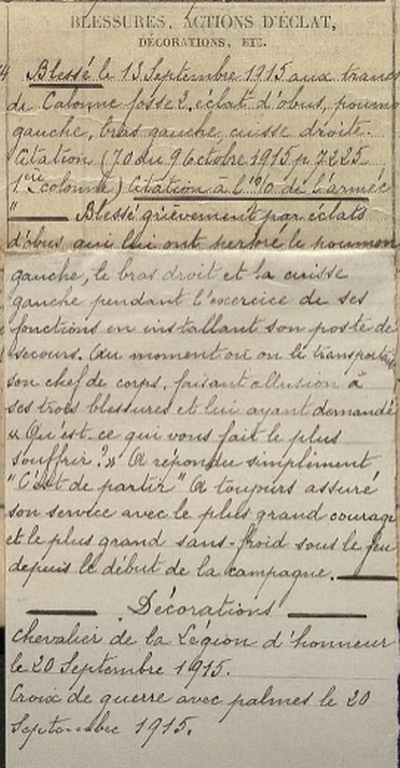 BLESSURES, ACTIONS D'ÉCLAT,
DÉCORATIONS, ETC.
Blessé le 13 Septembre 1915 aux tranc
de Calonne fosse 2. éclat d'obus, poumo
gauche, bras gauche cuisse droite.
Citation (JO du 9 Octobre 1915 p 7225
1ère colonne) Citation à l'O/O de l'armée
" Blessé grièvement par éclats
d'obus qui lui ont perforé le poumon
gauche, le bras droit et la cuisse
gauche pendant l'exercice de ses
fonctions en installant son poste de
secours. Au moment où on le transportait
son chef de corps, faisant allusion à
ses trois blessures et lui ayant demandé
« Qu'est-ce qui vous fait le plus
souffrir ? » A répondu simplement
"C'est de partir" A toujours assuré
son service avec le plus grand courage
et le plus grand sans-froid sous le feu
depuis le début de la campagne.
Décorations
Chevalier de la Légion d'honneur
le 20 Septembre 1915.
Croix de guerre avec palmes le 20
Septembre 1915.